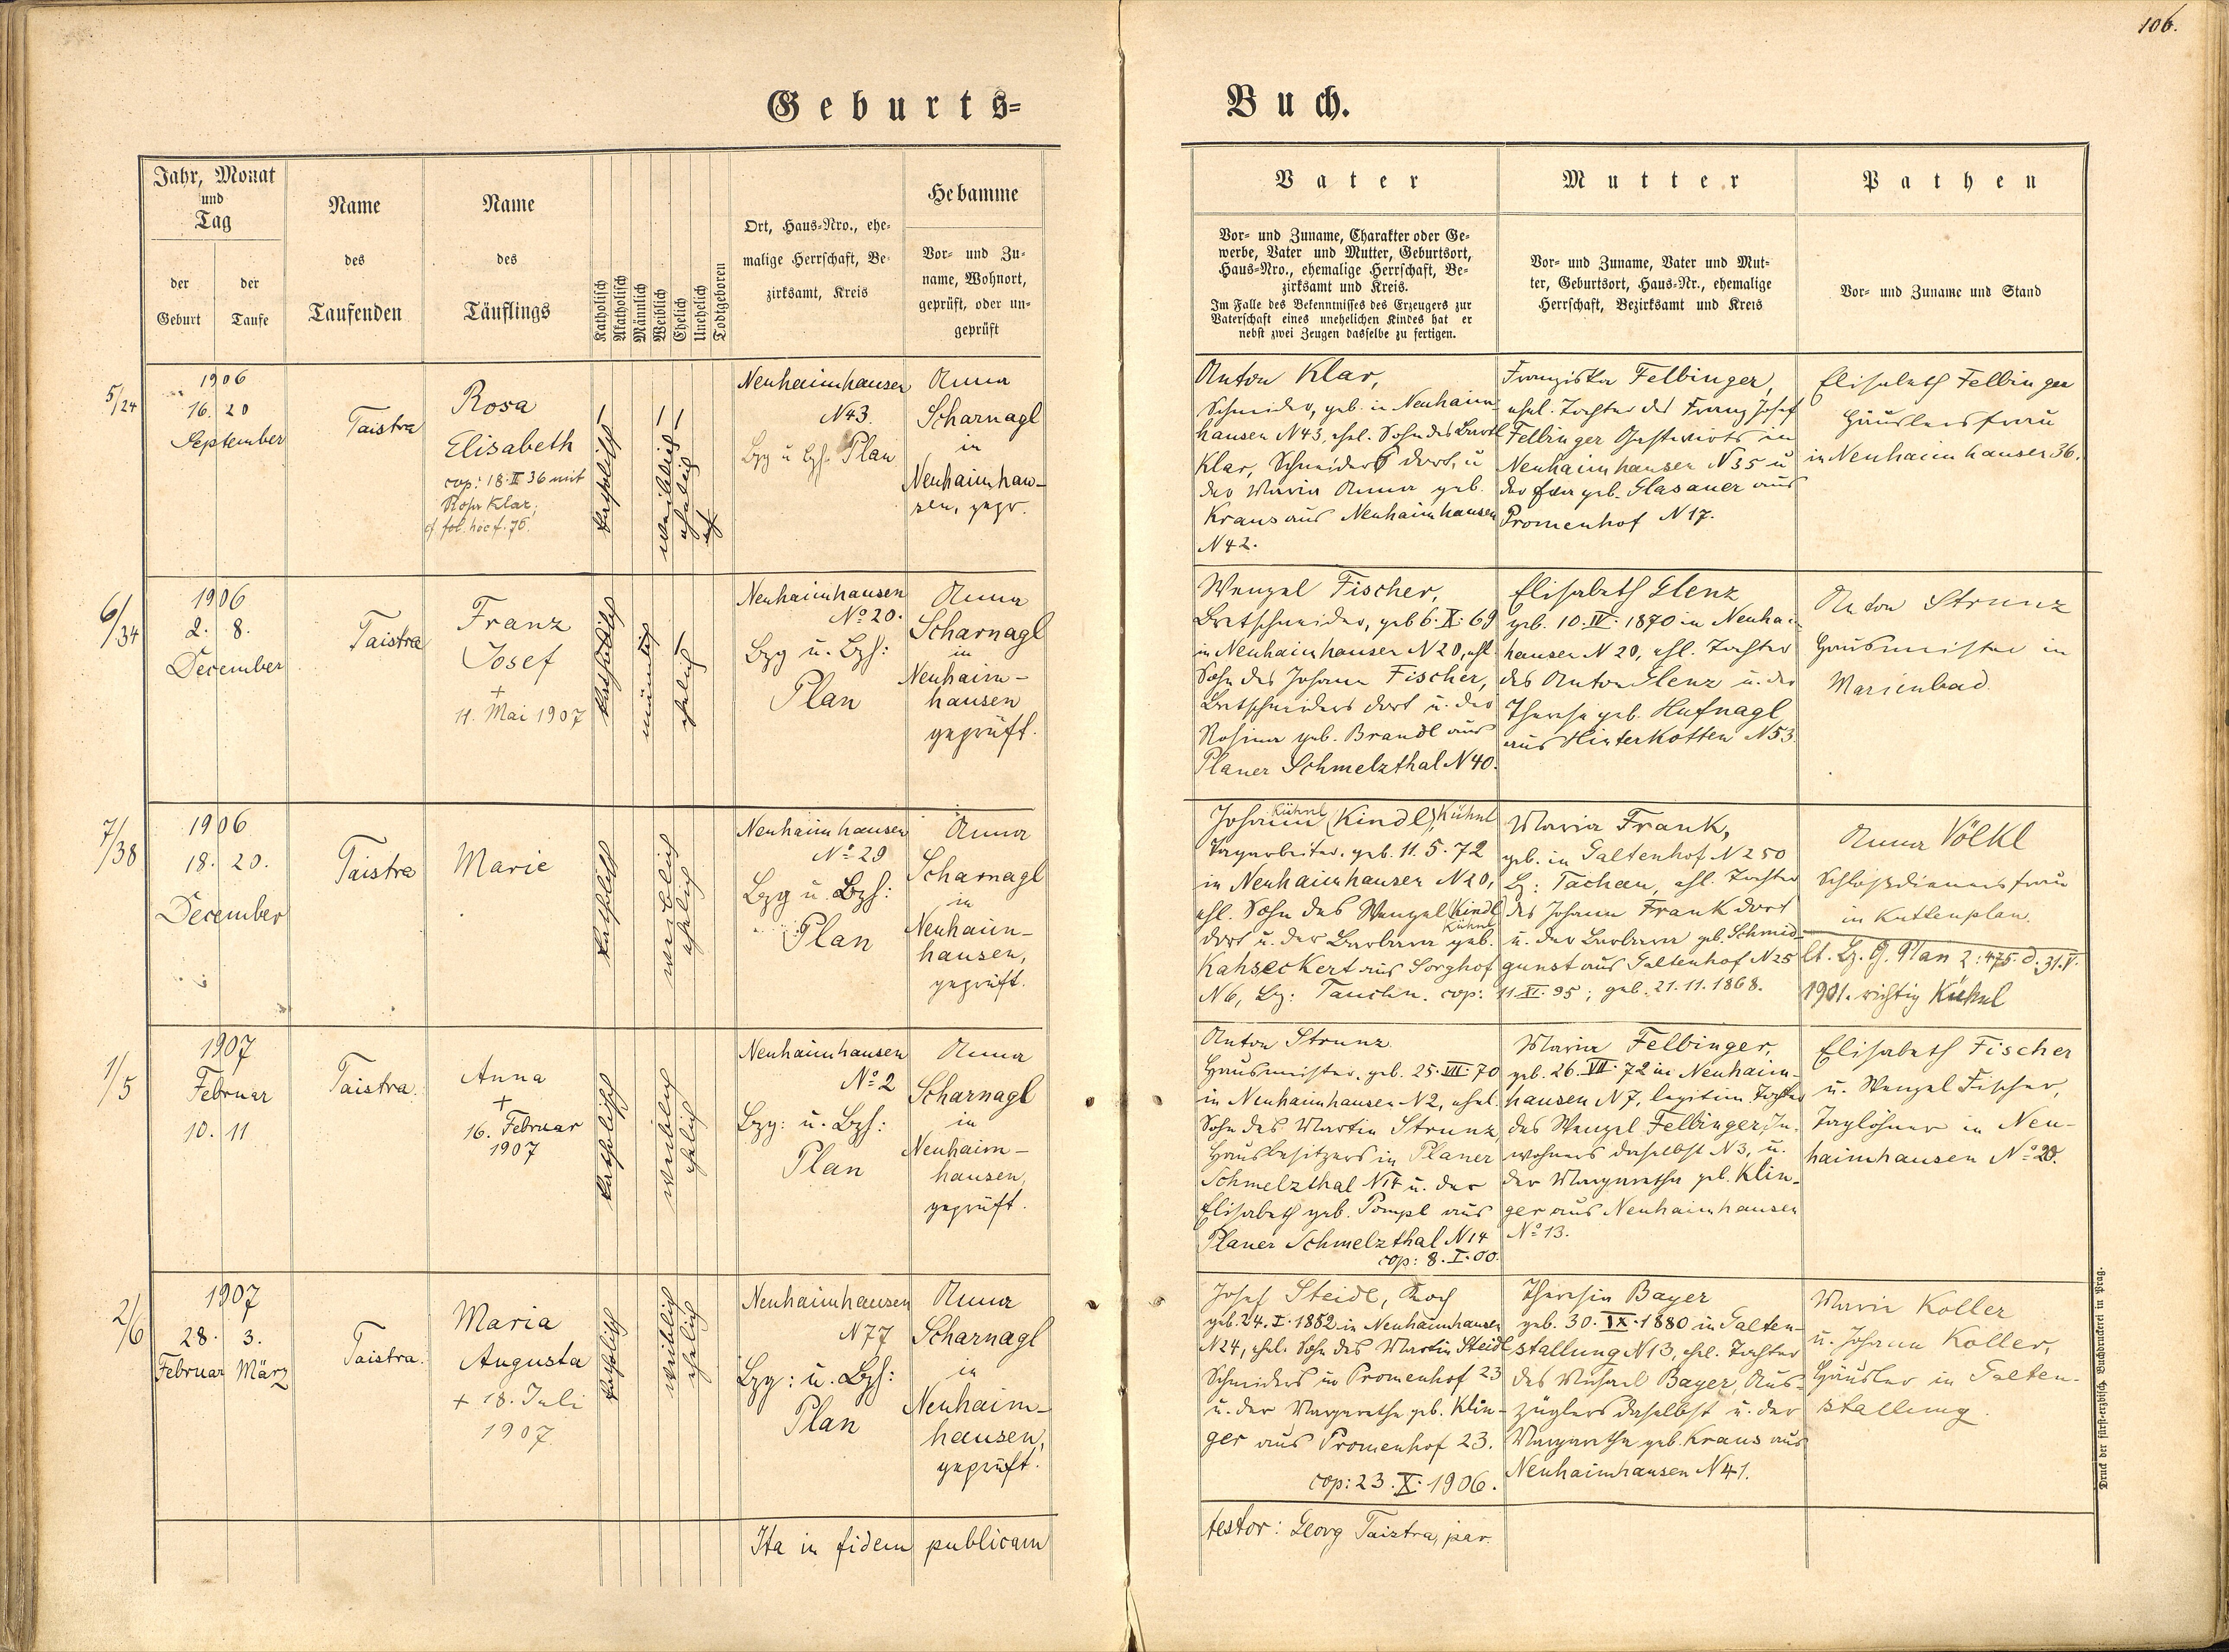 106.
Geburts=
Buch.
Jahr, Monat
und
Tag
der
Geburt
der
Taufe
Name
des
Taufenden
Name
des
Täuflings
Katholisch
Akatholisch
Männlich
Weiblich
Ehelich
Unehelich
Todtgeboren
Ort, Haus=Nro., ehe=
malige Herrschaft, Be=
zirksamt, Kreis
Hebamme
Vor= und Zu=
name, Wohnort,
geprüft, oder un=
geprüft
Vater
Vor= und Zuname, Charakter oder Ge=
werbe, Vater und Mutter, Geburtsort,
Haus=Nro., ehemalige Herrschaft, Be=
zirksamt und Kreis.
Im Falle des Bekenntnisses des Erzeugers zur
Vaterschaft eines unehelichen Kindes hat er
nebst zwei Zeugen dasselbe zu fertigen.
Mutter
Vor= und Zuname, Vater und Mut=
ter, Geburtsort, Haus=Nr., ehemalige
Herrschaft, Bezirksamt und Kreis
Pathen
Vor= und Zuname und Stand
5/24
1906
16. 20
September
Taistra
Rosa
Elisabeth
cop: 18. II 36 mit
Klar,
fol. hoc f. 75.
katholisch
weiblich
ehelich
Neuhaimhausen
N43.
Bzg u Bzh. Plan
Anna
Scharnagl
in
Neuhaimhau-
sen, gepr.
Anton Klar,
Schneider, geb. in Neuhaim-
hausen N43, ehel. Sohn des Bartl
Klar, Schneiders dort, u
der Maria Anna geb.
Kraus aus Neuhaimhausen
N42.
Franziska Felbinger,
ehel. Tochter des Franz Josef
Felbinger Gastwirts in
Neuhaimhausen N35 u
der geb. Glasauer aus
Promenhof N17.
Elisabeth Felbinger
Häuslersfrau
in Neuhaimhausen 36.
6/34
1906
2. 8.
December
Taistra
Franz
Josef
+
11. Mai 1907
katholisch
männlich
ehelich
Neuhaimhausen
No 20.
Bzg u. Bzh:
Plan
Anna
Scharnagl
in
Neuhaim-
hausen
geprüft.
Wenzel Fischer,
Bretschneider, geb 6. X. 69
in Neuhaimhausen N20, ehl.
Sohn des Johann Fischer,
Bretschneiders dort u. der
Rosina geb. Brandl aus
Planer Schmelzthal N40.
Elisabeth Glenz
geb. 10. IV. 1870 in Neuhaim-
hausen N20, ehl. Tochter
des Anton Glenz u. der
Theresia geb. Hufnagl
aus Hinterkotten N53.
Anton Strunz
Hausmeister in
Marienbad.
7/38
1906
18. 20.
December
Taistra
Marie
katholisch
weiblich
ehelich
Neuhaimhausen
No 29
Bzg u. Bzh:
Plan
Anna
Scharnagl
in
Neuhaim-
hausen,
geprüft.
Kühnl
Johann (Kindl), Kühnl
Tagarbeiter, geb. 11. 5. 72
in Neuhaimhausen N20,
ehl. Sohn des Wenzel (Kindl
Kühnl
dort u. der Barbara geb.
Kahseckert aus Sorghof
N6, Bz: Tauchin. cop: 11. XI. 95; geb. 21. 11. 1868.
Maria Frank,
geb. in Galtenhof N250
Bz: Tachau, ehl. Tochter
des Johann Frank dort
u. der Barbara geb. Schmid-
gunst aus Galtenhof N25
Anna Völkl
Schloßdienersfrau
in Kuttenplan.
lt. Bz. G. Plan Z: 475. d. 31. V.
1901. richtig Kühnl
1/5
1907
Februar
10. 11
Taistra.
Anna
+
16. Februar
1907
katholisch
weiblich
ehelich
Neuhaimhausen
No 2
Bzg: u. Bzh:
Plan
Anna
Scharnagl
in
Neuhaim-
hausen,
geprüft.
Anton Strunz
Hausmeister, geb. 25. VII. 70
in Neuhaimhausen N2, ehel.
Sohn des Martin Strunz,
Hausbesitzers in Planer
Schmelzthal N14 u. der
Elisabeth geb. Pompl aus
Planer Schmelzthal N14
cop: 8. I. 00.
Maria Felbinger,
geb. 26. VII. 72 in Neuhaim-
hausen N7, legitim. Tochter
des Wenzel Felbinger, In-
wohners daselbst N3, u.
der Margaretha geb. Klin-
ger aus Neuhaimhausen
No 13.
Elisabeth Fischer
u. Wenzel Fischer,
Taglöhner in Neu-
haimhausen No 20.
2/6
1907
28. 3.
Februar März
Taistra.
Maria
Augusta
+ 18. Juli
1907
katholisch
weiblich
ehelich
Neuhaimhausen
N77
Bzg: u. Bzh:
Plan
Anna
Scharnagl
in
Neuhaim-
hausen,
geprüft.
Josef Steidl, Koch
geb. 24. I. 1882 in Neuhaimhausen
N24, ehel. Sohn des Martin Steidl
Schneiders in Promenhof 23
u. der Margaretha geb. Klin-
ger aus Promenhof 23.
cop: 23. X. 1906.
Theresia Bayer
geb. 30. IX. 1880 in Galten-
stallung N13, ehl. Tochter
des Michael Bayer, Aus-
züglers daselbst u. der
Margaretha geb. Kraus aus
Neuhaimhausen N41.
Maria Koller
u. Johann Koller,
Häusler in Galten-
stallung
Ita in fidem publicam
testor: Georg Taistra, par.
Druck der fürst=erzbisch. Buchdruckerei in Prag.